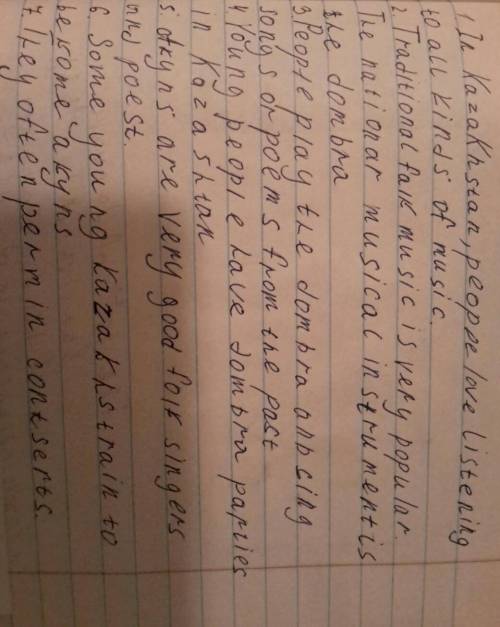 1. In Kazakhstan, peopee love listening
to all kinds of music.
2. Traditional folk music is very popular
The nationar musical instrument is
the dombra
3. People play the dombra anb cing
songs or poems from the past
4 Young people have dombra paries
in Kazashtan
5. akyns are very good folk singers
any poest.
6. Some young Kazakhs train to
become akyns
7. They often permin contserts.